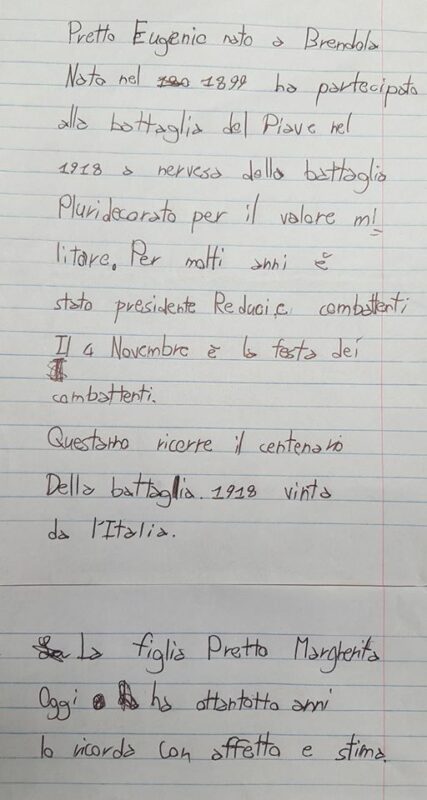 Pretto Eugenio nato a Brendola
Nato nel 1899 ha partecipato
alla battaglia del Piave nel
1918 a nervesa della battaglia
Pluridecorato per il valore mi
litare. Per molti anni è
stato presidente Reduci e combattenti
Il 4 Novembre è la festa dei
combattenti.
Questanno ricorre il centenario
Della battaglia. 1918 vinta
da l'Italia.
La figlia Pretto Margherita
Oggi ha ottantotto anni
lo ricorda con affetto e stima.